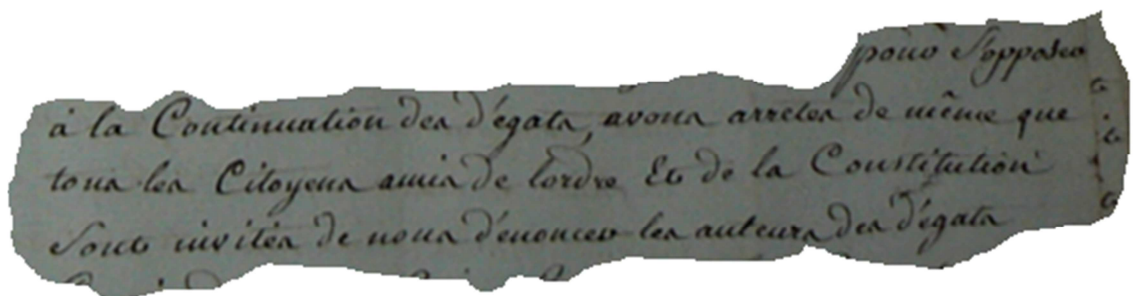 pour S'opposer
à la Continuation des dégats, avons arretés de même que
tous les Citoyens amis de lordre Et de la Constitution
Sont invités de nous dénoncer les auteurs des dégats